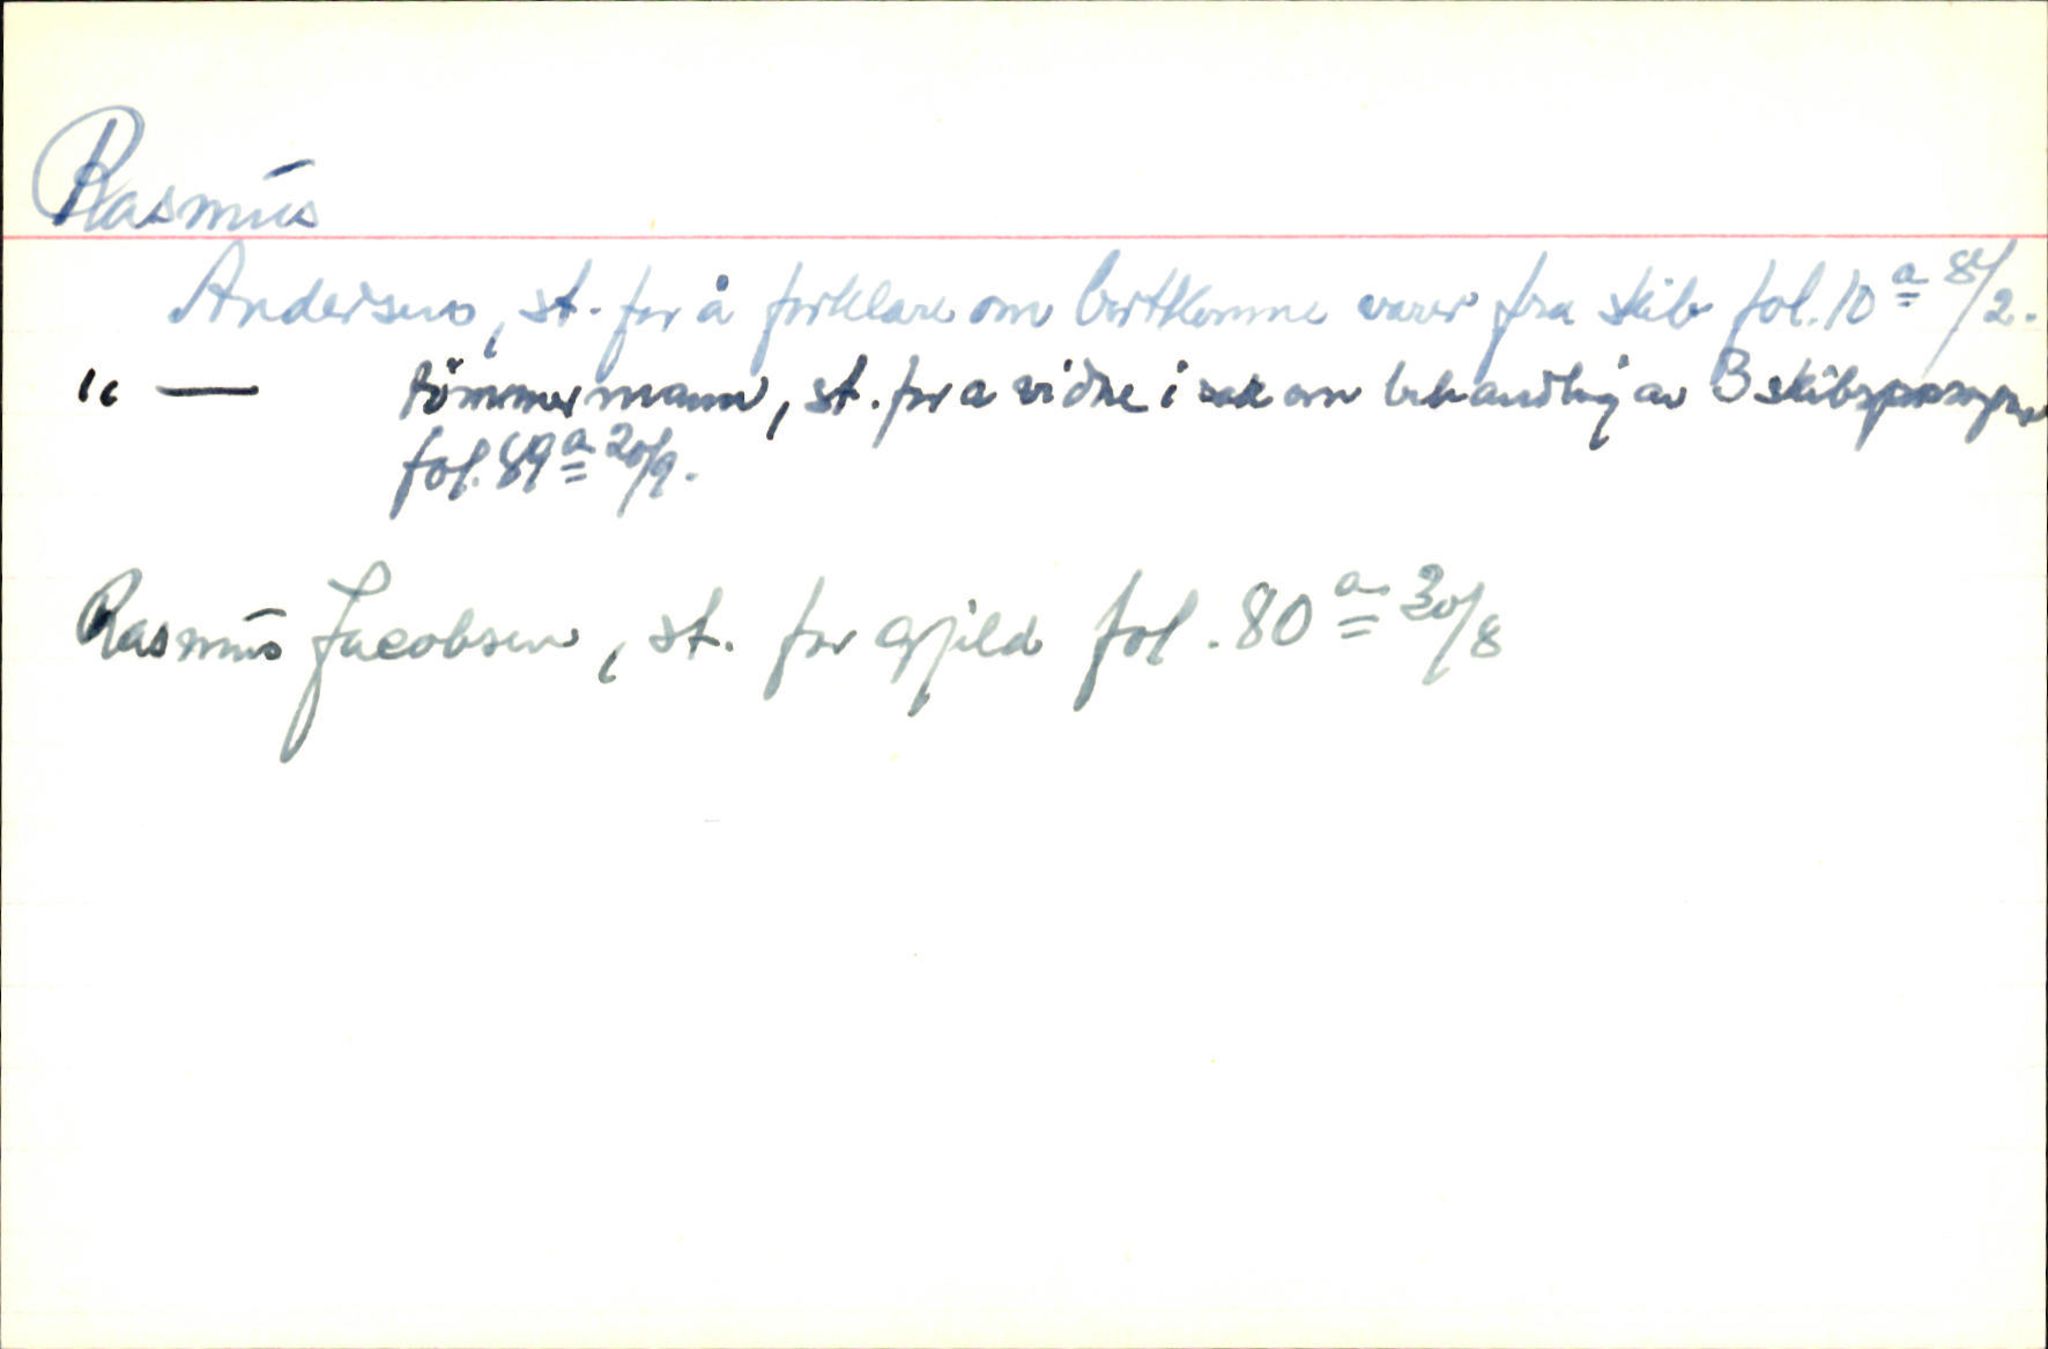 Rasmus
Andersen, st. for å forklare om bortkomne varer fra skib fol. 10 a 8/2.
" — tömmermann, st. for a vidne i sak om behandling av 3 skibs
fol. 89 a 20/9.
Rasmus Jacobsen, st. for gjeld fol. 80 a 30/8